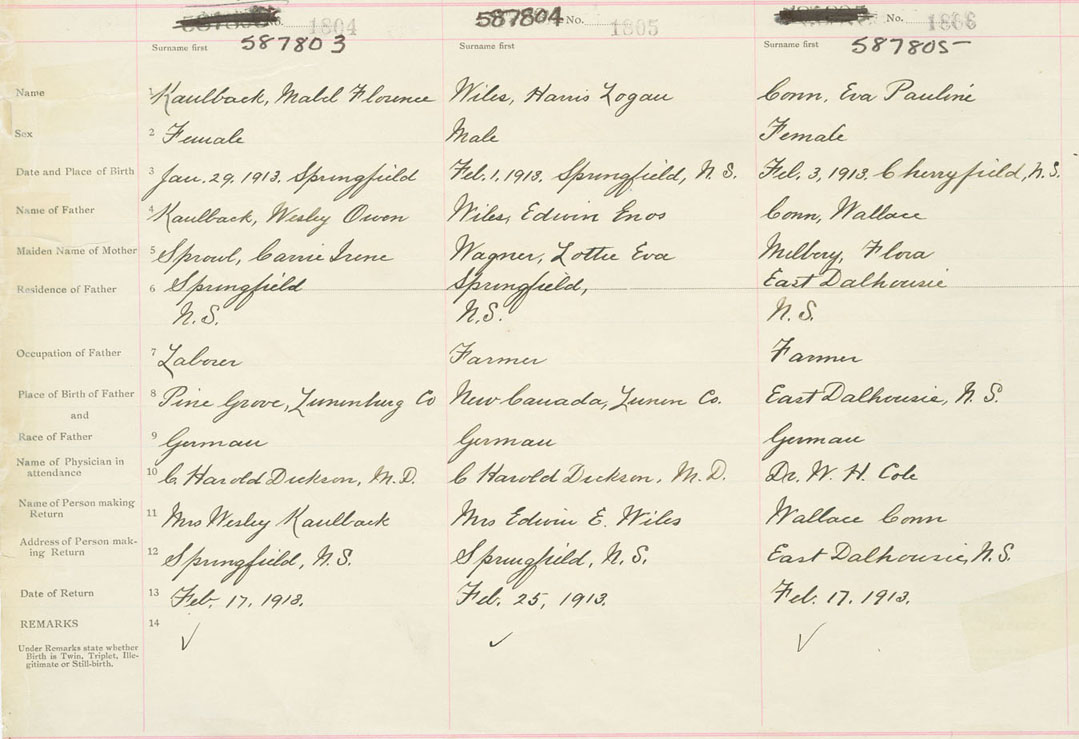 No. 1804 587804 No. 1805 No. 1806
Surname first 587803 Surname first Surname first 587805
Name 1 Kaulback, Mabel Florence Wiles, Harris Logan Conn, Eva Pauline
Sex 2 Female Male Female
Date and Place of Birth 3 Jan. 29, 1913. Springfield Feb. 1, 1913. Springfield, N.S. Feb. 3, 1913. Cherryfield, N.S.
Name of Father 4 Kaulback, Wesley Owen Wiles, Edwin Enos Conn, Wallace
Maiden Name of Mother 5 Sprowl, Carrie Irene Wagner, Lottie Eva Milbery, Flora
Residence of Father 6 Springfield Springfield, East Dalhousie
N.S. N.S. N.S.
Occupation of Father 7 Laborer Farmer Farmer
Place of Birth of Father 8 Pine Grove, Lunenburg Co New Canada, Lunen Co. East Dalhousie, N.S.
and
Race of Father 9 German German German
Name of Physician in
attendance 10 C. Harold Dickson, M.D. C Harold Dickson, M.D. Dr. W. H. Cole
Name of Person making
Return 11 Mrs Wesley Kaulback Mrs Edwin E. Wiles Wallace Conn
Address of Person mak-
ing Return 12 Springfield, N.S. Springfield, N.S. East Dalhousie, N.S.
Date of Return 13 Feb. 17. 1913. Feb. 25, 1913. Feb. 17. 1913.
REMARKS 14
Under Remarks state whether
Birth is Twin, Triplet, Ille-
gitimate or Still-birth.